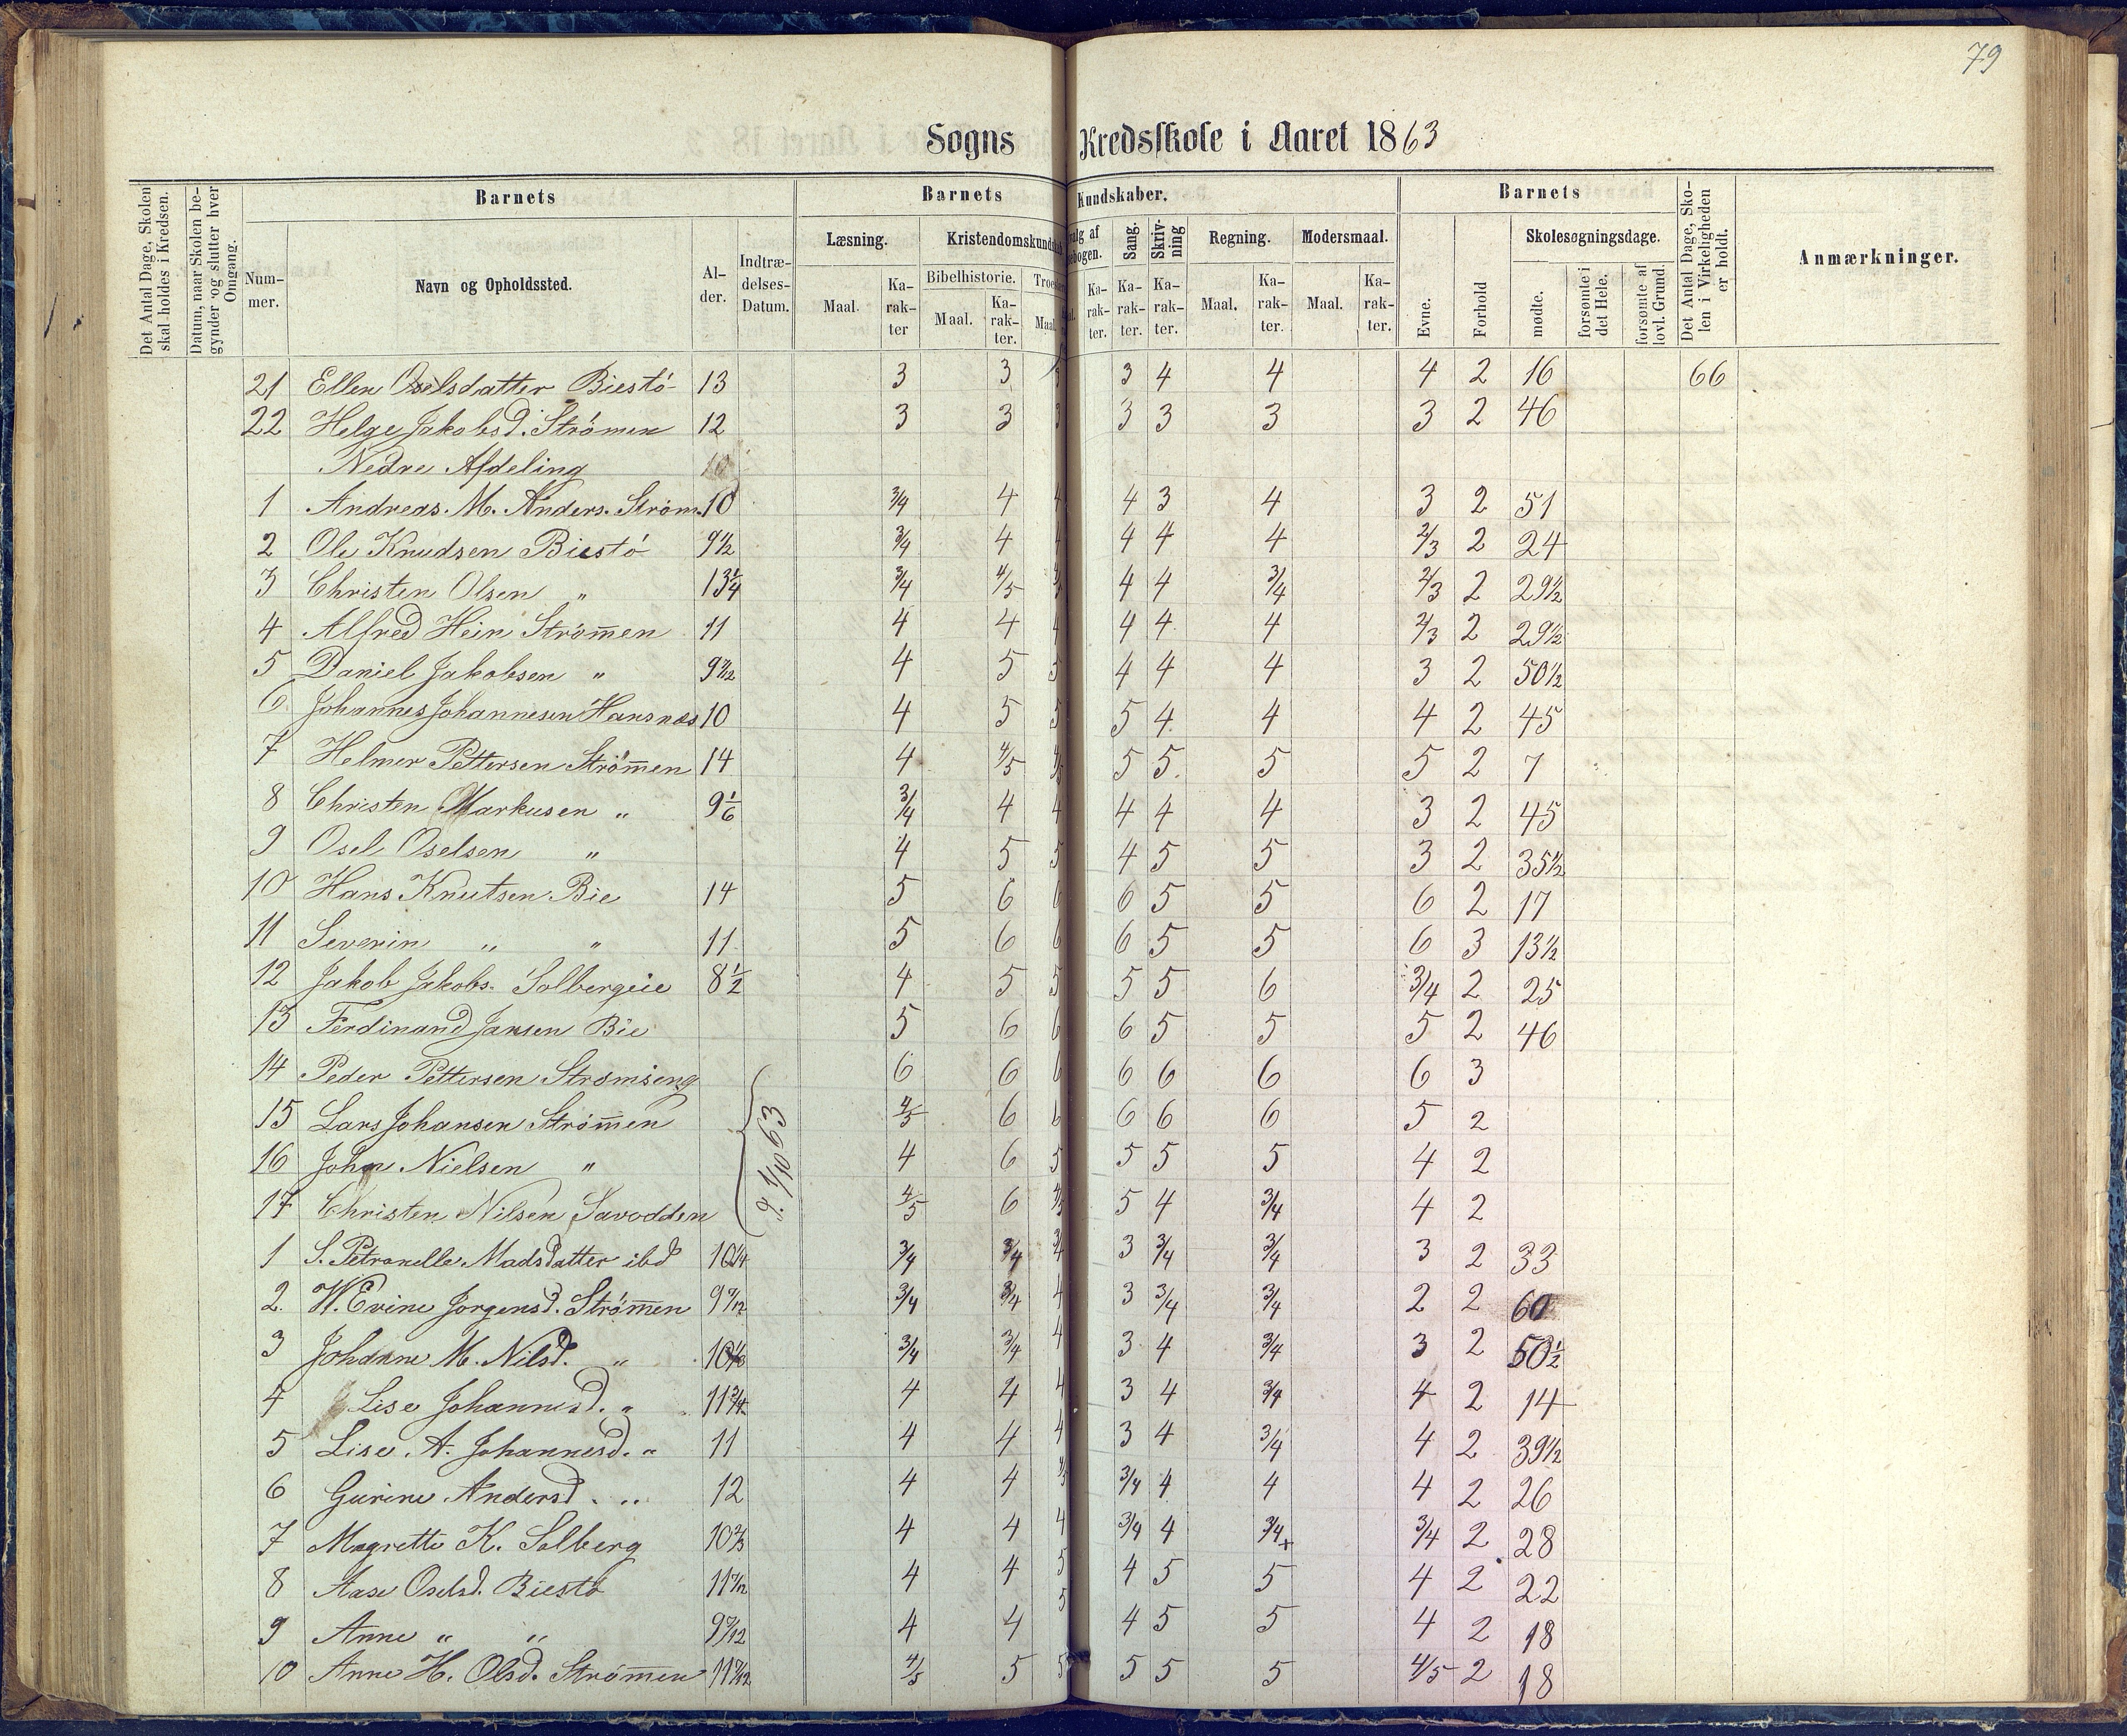 79
Sogns Kredsskole i Aaret 1863
Det Antal Dage, Skolen skal holdes i Kredsen.
Datum, naar Skolen begynder og slutter hver Omgang.
Barnets
Barnets Kundskaber.
Barnets
Det Antal Dage, Skolen i Virkeligheden er holdt.
Anmærkninger.
Nummer.
Navn og Opholdssted.
Alder.
Indtrædelses-Datum.
Læsning.
Kristendomskundskab
valg af
Sang.
Skrivning
Regning.
Modersmaal.
Evne.
Forhold
Skolesøgningsdage.
Maal.
Karakter
Bibelhistorie.
Maal.
Karakter.
Maal.
Karakter.
Karakter.
Karakter.
Maal.
Karakter.
Maal.
Karakter.
mødte.
forsømte i det Hele.
forsømte af lovl. Grund.
21 Ellen Oselsdatter Biestö 13 3 3 3 3 4 4 4 2 16 66
22 Helge Jakobsd. Strömen 12 3 3 3 3 3 3 3 2 46
Nedre Afdeling 10
1 Andreas. M. Anders. Ström. 10 3/4 4 4 4 3 4 3 2 51
2 Ole Knudsen Biestö 9 1/2 3/4 4 4 4 4 4 2/3 2 24
3 Christen Olsen " 13 1/4 3/4 4/5 4/5 4 4 3/4 2/3 2 29 1/2
4 Alfred Hein Strömen 11 4 4 4 4 4 4 2/3 2 29 1/2
5 Daniel Jakobsen " 9 7/12 4 5 5 4 4 4 3 2 50 1/2
6 Johannes Johannesen Hansnæs 10 4 5 5 5 4 4 4 2 45
7 Helmer Pettersen Strömen 14 4 4/5 4/5 5 5 5 5 2 7
8 Christen Markusen " 9 1/6 3/4 4 4 4 4 4 3 2 45
9 Osel Oselsen " 4 5 5 4 5 5 3 2 35 1/2
10 Hans Knutsen Bie 14 5 6 6 6 5 5 6 2 17
11 Severin " " 11 5 6 6 6 5 5 6 3 13 1/2
12 Jakob Jakobs. Solbergeie 8 1/2 4 5 5 5 5 6 3/4 2 25
13 Ferdinand Jansen Bie 5 6 6 6 5 5 5 2 46
14 Peder Pettersen Strömseng 6 6 6 6 6 6 6 3
15 Lars Johansen Strömen 4/5 6 6 6 6 6 5 2
16 Johan Nielsen " 4 6 5 5 5 5 4 2
17 Christen Nilsen Savodden 4/5 6 4/5 5 4 3/4 4 2
1/10 63
1 S. Petronelle Madsdatter ibd 10 1/4 3/4 3/4 3/4 3 3/4 3/4 3 2 33
2. W. Evine Jorgensd. Strömen 9 9/12 3/4 3/4 4 3 3/4 3/4 2 2 60
3 Johanne M. Nilsd. " 10 3/4 3/4 4 3 4 3/4 3 2 50 1/2
4 Lise Johannesd. " 11 3/4 4 4 4 3 4 3/4 4 2 14
5 Lise. A. Johannesd. " 11 4 4 4 3 4 3/4 4 2 39 1/2
6 Gurine Andersd. " 12 4 4 4/5 3/4 4 4 4 2 26
7 Magrette K. Solberg 10 2/3 4 4 4 3/4 4 3/4+ 3/4 2 28
8 Aase Oselsd. Biestö 11 7/12 4 4 5 4 5 5 4 2 22
9 Anne " " 9 7/12 4 4 5 4 5 5 4 2 18
10 Anne H. Olsd. Strömen 11 7/12 4/5 5 5 5 5 5 4/5 2 18